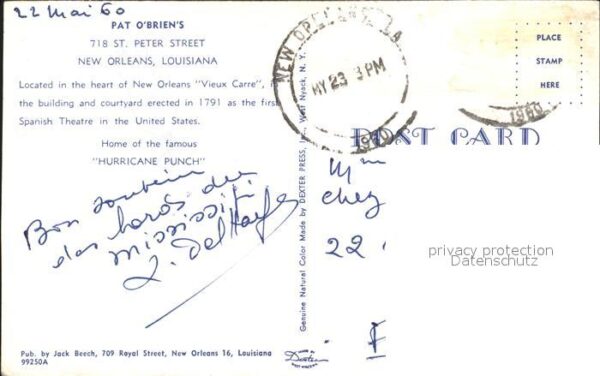 22 Mai 60
PAT O'BRIEN'S
718 ST. PETER STREET
NEW ORLEANS, LOUISIANA
Located in the heart of New Orleans "Vieux Carre",
the building and courtyard erected in 1791 as the first
Spanish Theatre in the United States.
Home of the famous
"HURRICANE PUNCH"
Bon souvenir
des bords du
Mississipi
Pub. by Jack Beech, 709 Royal Street, New Orleans 16, Louisiana
99250A
Genuine Natural Color Made by DEXTER PRESS, Inc. West Nyack, N. Y.
Dexter
WEST NYACK
NEW ORLEANS, LA.
MY 23 3 PM
1960
1960
PLACE
STAMP
HERE
POST CARD
Mme
Chez
22
F
privacy protection
Datenschutz